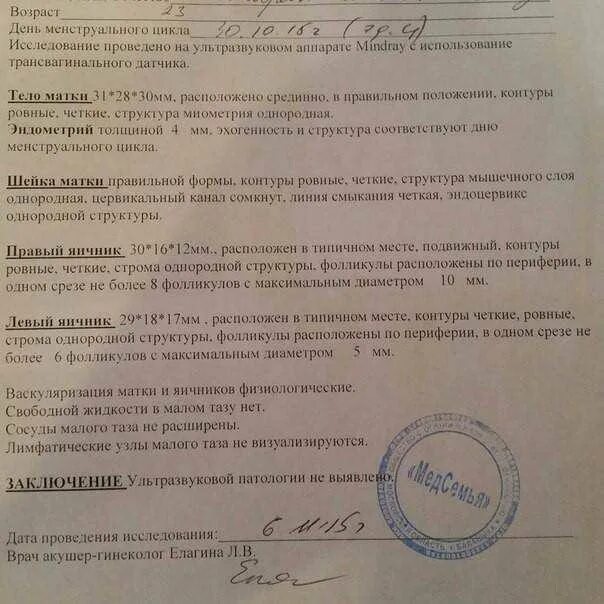 Возраст 23
День менструального цикла 30.10.15г
Исследование проведено на ультразвуковом аппарате Mindray с использование
трансвагинального датчика.
Тело матки 31*28*30мм, расположено срединно, в правильном положении, контуры
ровные, четкие, структура миометрия однородная.
Эндометрий толщиной 4 мм, эхогенность и структура соответствуют дню
менструального цикла.
Шейка матки правильной формы, контуры ровные, четкие, структура мышечного слоя
однородная, цервикальный канал сомкнут, линия смыкания четкая, эндоцервикс
однородной структуры.
Правый яичник 30*16*12мм., расположен в типичном месте, подвижный, контуры
ровные, четкие, строма однородной структуры, фолликулы расположены по периферии, в
одном срезе не более 8 фолликулов с максимальным диаметром 10 мм.
Левый яичник 29*18*17мм , расположен в типичном месте, контуры четкие, ровные,
строма однородной структуры, фолликулы расположены по периферии, в одном срезе не
более 6 фолликулов с максимальным диаметром 5 мм.
Васкуляризация матки и яичников физиологические.
Свободной жидкости в малом тазу нет.
Сосуды малого таза не расширены.
Лимфатические узлы малого таза не визуализируются.
ЗАКЛЮЧЕНИЕ Ультразвуковой патологии не выявлено.
«МедСемья»
Дата проведения исследования: 6 11 15г
Врач акушер-гинеколог Елагина Л.В.